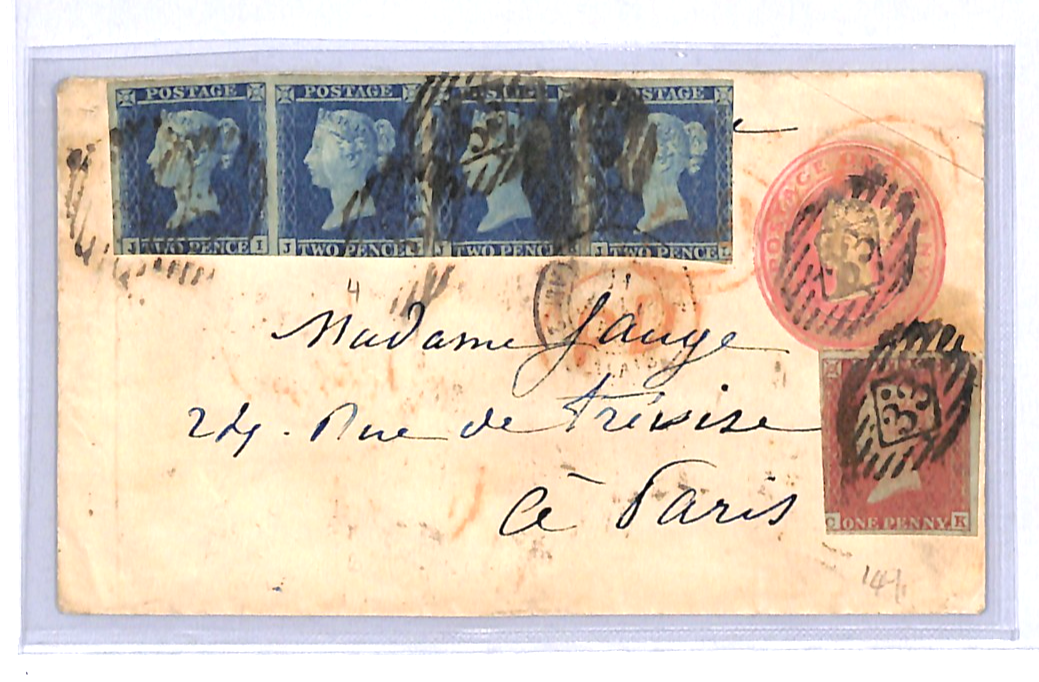 POSTAGE POSTAGE POSTAGE
J TWO PENCE I J TWO PENCE J TWO PENCE J TWO PENCE L
POSTAGE ONE PENNY
4
Madame Gauge
24. Rue de Trévise
à Paris
C ONE PENNY K